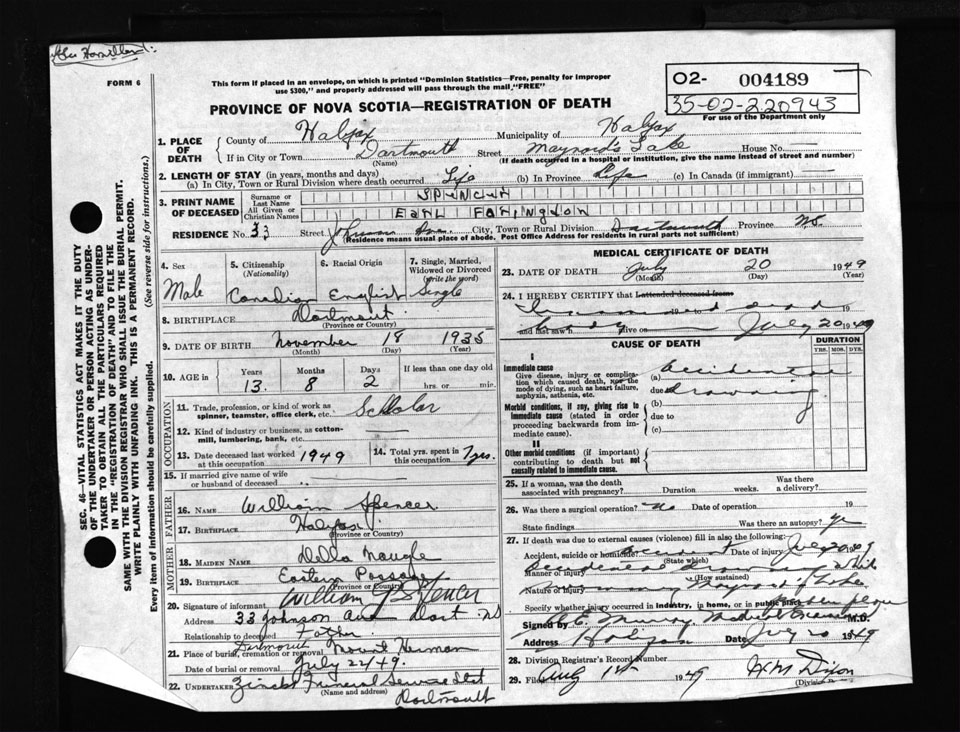 FORM 6
This form if placed in an envelope, on which is printed "Dominion Statistics—Free, penalty for improper
use $300," and properly addressed will pass through the mail "FREE"
PROVINCE OF NOVA SCOTIA—REGISTRATION OF DEATH
02- 004189
35-02-220943
For use of the Department only
1. PLACE OF DEATH County of Halifax Municipality of Halifax
If in City or Town Dartmouth Street Maynard's Lake House No.
(Name) (If death occurred in a hospital or institution, give the name instead of street and number)
2. LENGTH OF STAY (in years, months and days)
(a) In City, Town or Rural Division where death occurred Life (b) In Province Life (c) In Canada (if immigrant)
3. PRINT NAME OF DECEASED Surname or Last Name SPENCER
All Given or Christian Names EARL FARINGTON
RESIDENCE No. 33 Street Johnson Ave. City, Town or Rural Division Dartmouth Province N.S.
(Residence means usual place of abode. Post Office Address for residents in rural parts not sufficient)
4. Sex Male
5. Citizenship (Nationality) Canadian
6. Racial Origin English
7. Single, Married, Widowed or Divorced (write the word) Single
8. BIRTHPLACE Dartmouth
(Province or Country)
9. DATE OF BIRTH November 18 1935
(Month) (Day) (Year)
10. AGE in Years 13 Months 8 Days 2 If less than one day old hrs. or min.
OCCUPATION
11. Trade, profession, or kind of work as spinner, teamster, office clerk, etc. Scholar
12. Kind of industry or business, as cotton-mill, lumbering, bank, etc.
13. Date deceased last worked at this occupation 1949
14. Total yrs. spent in this occupation 7 yrs.
15. If married give name of wife or husband of deceased
FATHER
16. NAME William Spencer
17. BIRTHPLACE Halifax
(Province or Country)
MOTHER
18. MAIDEN NAME Della Naugle
19. BIRTHPLACE Eastern Passage
(Province or Country)
20. Signature of informant William Spencer
Address 33 Johnson Ave Dart NS
Relationship to deceased Father
21. Place of burial, cremation or removal Dartmouth Mount Herman
Date of burial or removal July 22 49.
22. UNDERTAKER Zincks Funeral Service Ltd
(Name and address) Dartmouth
MEDICAL CERTIFICATE OF DEATH
23. DATE OF DEATH July 20 1949
(Month) (Day) (Year)
24. I HEREBY CERTIFY that I attended deceased from
dead 19
and last saw h body alive on July 20 1949
CAUSE OF DEATH
DURATION
YRS. MOS. DYS.
I
Immediate cause
Give disease, injury or complication which caused death, not the mode of dying, such as heart failure, asphyxia, asthenia, etc.
(a) Accidental
due to drowning
Morbid conditions, if any, giving rise to immediate cause (stated in order proceeding backwards from immediate cause).
(b)
due to
(c)
II
Other morbid conditions (if important) contributing to death but not causally related to immediate cause.
25. If a woman, was the death associated with pregnancy? Duration weeks. Was there a delivery?
26. Was there a surgical operation? no Date of operation 19
State findings Was there an autopsy? yes
27. If death was due to external causes (violence) fill in also the following:
Accident, suicide or homicide? Accident Date of injury July 20 1949
(State which)
Manner of injury Accidental drowning while
(How sustained)
Nature of injury Maynard's Lake
Specify whether injury occurred in industry, in home, or in public place Public place
Signed by Murray Medical Examiner M.D.
Address Halifax Date July 20 1949
28. Division Registrar's Record Number
29. Filed Aug 1st 1949 H M Dixon
(Division
SEC. 46—VITAL STATISTICS ACT MAKES IT THE DUTY
OF THE UNDERTAKER OR PERSON ACTING AS UNDERTAKER
TO OBTAIN ALL THE PARTICULARS REQUIRED
IN THE "REGISTRATION OF DEATH" AND TO FILE THE
SAME WITH THE DIVISION REGISTRAR WHO SHALL ISSUE THE BURIAL PERMIT.
WRITE PLAINLY WITH UNFADING INK. THIS IS A PERMANENT RECORD.
Every item of information should be carefully supplied. (See reverse side for instructions.)